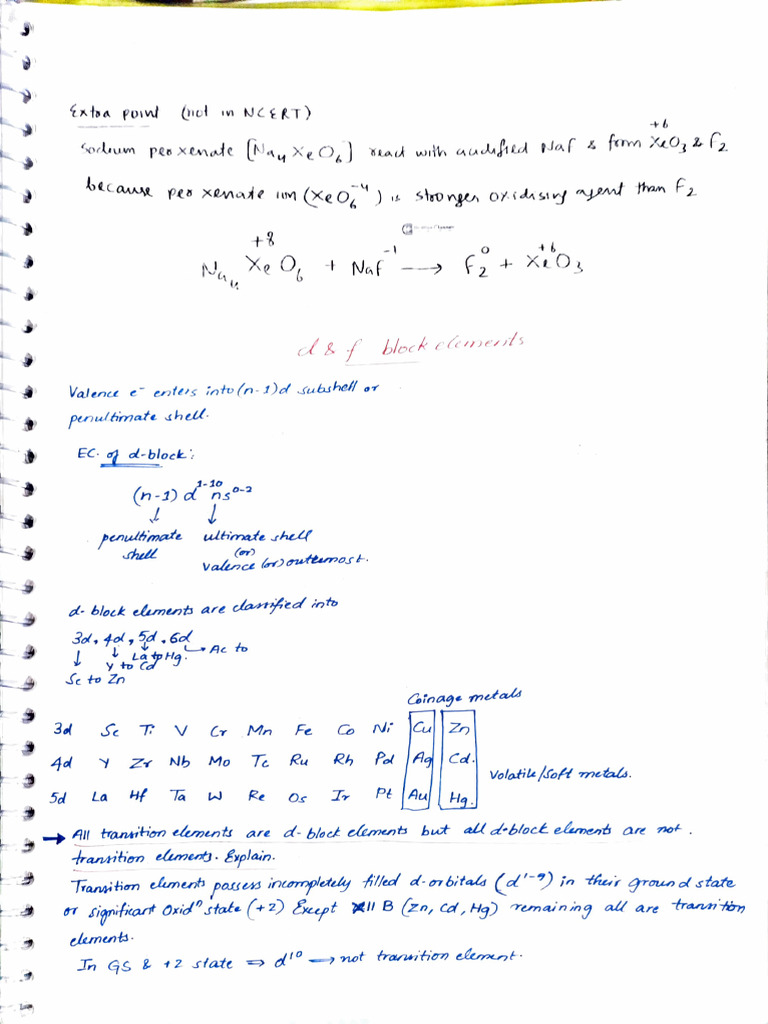 Extra point (not in NCERT)
Sodium perxenate [Na4XeO6] react with acidified NaF & form +6 XeO3 & F2
because perxenate ion (XeO6^-4) is stronger oxidising agent than F2
+8 -1 0 +6
Na4 XeO6 + NaF → F2 + XeO3
d & f block elements
Valence e⁻ enters into (n-1)d subshell or
penultimate shell.
EC. of d-block:
(n-1) d^1-10 ns^0-2
↓ ↓
penultimate ultimate shell
shell (or)
valence (or) outermost.
d-block elements are classified into
3d, 4d, 5d, 6d
↓ ↓ ↓ → Ac to
La to Hg.
Y to Cd
Sc to Zn
Coinage metals
3d Sc Ti V Cr Mn Fe Co Ni Cu Zn
4d Y Zr Nb Mo Tc Ru Rh Pd Ag Cd.
Volatile/Soft metals.
5d La Hf Ta W Re Os Ir Pt Au Hg.
→ All transition elements are d-block elements but all d-block elements are not.
transition elements. Explain.
Transition elements possess incompletely filled d-orbitals (d^1-9) in their ground state
or significant Oxid^n state (+2) Except II B (Zn, Cd, Hg) remaining all are transition
elements.
In GS & +2 state ⇒ d^10 → not transition element.